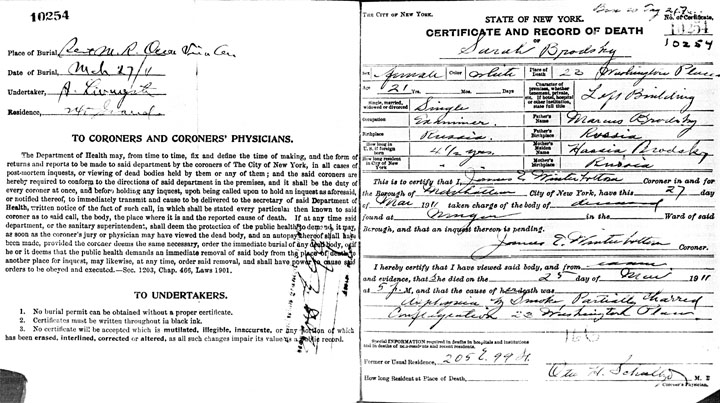 10254
Place of Burial,
Date of Burial, Mch 27/11
Undertaker,
Residence,
TO CORONERS AND CORONERS' PHYSICIANS.
The Department of Health may, from time to time, fix and define the time of making, and the form of
returns and reports to be made to said department by the coroners of The City of New York, in all cases of
post-mortem inquests, or viewing of dead bodies held by them or any of them; and the said coroners are
hereby required to conform to the directions of said department in the premises, and it shall be the duty of
every coroner at once, and before holding any inquest, upon being called upon to hold an inquest as aforesaid,
or notified thereof, to immediately transmit and cause to be delivered to the secretary of said Department of
Health, written notice of the fact of such call, in which shall be stated every particular then known to said
coroner as to said call, the body, the place where it is and the reported cause of death. If at any time said
department, or the sanitary superintendent, shall deem the protection of the public health to demand it, it may,
as soon as the coroner's jury or physician may have viewed the dead body, and an autopsy thereof shall have
been made, provided the coroner deems the same necessary, order the immediate burial of any dead body, or if
he or it deems that the public health demands an immediate removal of said body from the place of death to
another place for inquest, may likewise, at any time, order said removal, and shall have power to cause said
orders to be obeyed and executed.—Sec. 1203, Chap. 466, Laws 1901.
TO UNDERTAKERS.
1. No burial permit can be obtained without a proper certificate.
2. Certificates must be written throughout in black ink.
3. No certificate will be accepted which is mutilated, illegible, inaccurate, or any portion of which
has been erased, interlined, corrected or altered, as all such changes impair its value as a public record.
THE CITY OF NEW YORK.
STATE OF NEW YORK.
No. of Certificate,
10254
CERTIFICATE AND RECORD OF DEATH
10254
OF
Sarah Brodsky
Sex Female Color White Place of Death 23 Washington Place
Age 21 Yrs. Mos. Days
Character of premises, whether tenement, private, etc. If hotel, hospital or other institution, state full title Loft Building
Single, married, widowed or divorced Single
Occupation Examiner Father's Name Marcus Brodsky
Birthplace Russia Father's Birthplace Russia
How long in U. S. if foreign born 4 1/2 yrs. Mother's Maiden Name Hassia Brodsky
How long resident in City of New York Mother's Birthplace Russia
This is to certify that I, James E. Winterbottom Coroner in and for
the Borough of Manhattan City of New York, have this 27 day
of Mar 1911 taken charge of the body of deceased
found at Morgue in the Ward of said
Borough, and that an inquest thereon is pending.
James E. Winterbottom Coroner.
I hereby certify that I have viewed said body, and from same
and evidence, that she died on the 25 day of Mar 1911
at 5 P. M, and that the cause of her death was
Asphyxia by Smoke Partially Charred
Conflagration 23 Washington Place
Special INFORMATION required in deaths in hospitals and institutions
and in deaths of non-residents and recent residents.
Former or Usual Residence, 205 E. 99 St.
How long Resident at Place of Death, Otto H. Schultze M. D
Coroner's Physician.